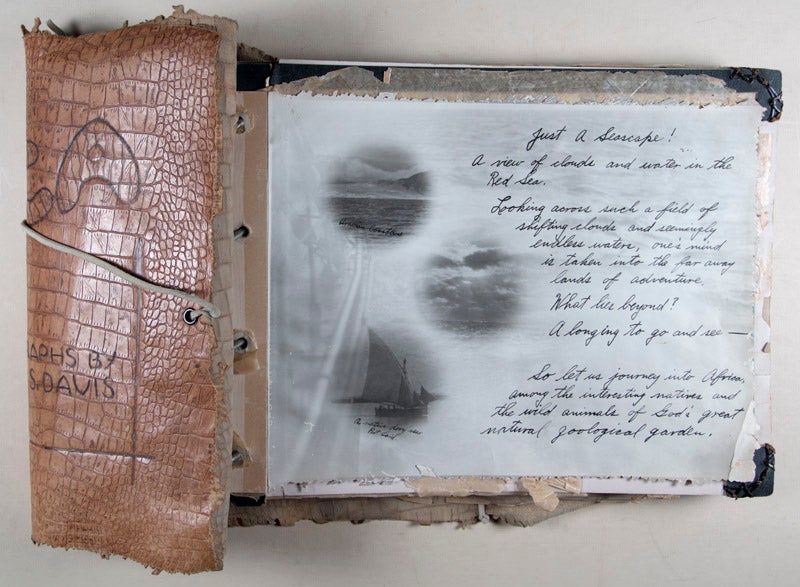 APHS BY
S. DAVIS
A native
Just A Seascape!
A view of clouds and water in the
Red Sea.
Looking across such a field of
shifting clouds and seemingly
endless waters, one's mind
is taken into the far away
lands of adventure.
What lies beyond?
A longing to go and see —
So let us journey into Africa,
among the interesting natives and
the wild animals of God's great
natural zoological garden.